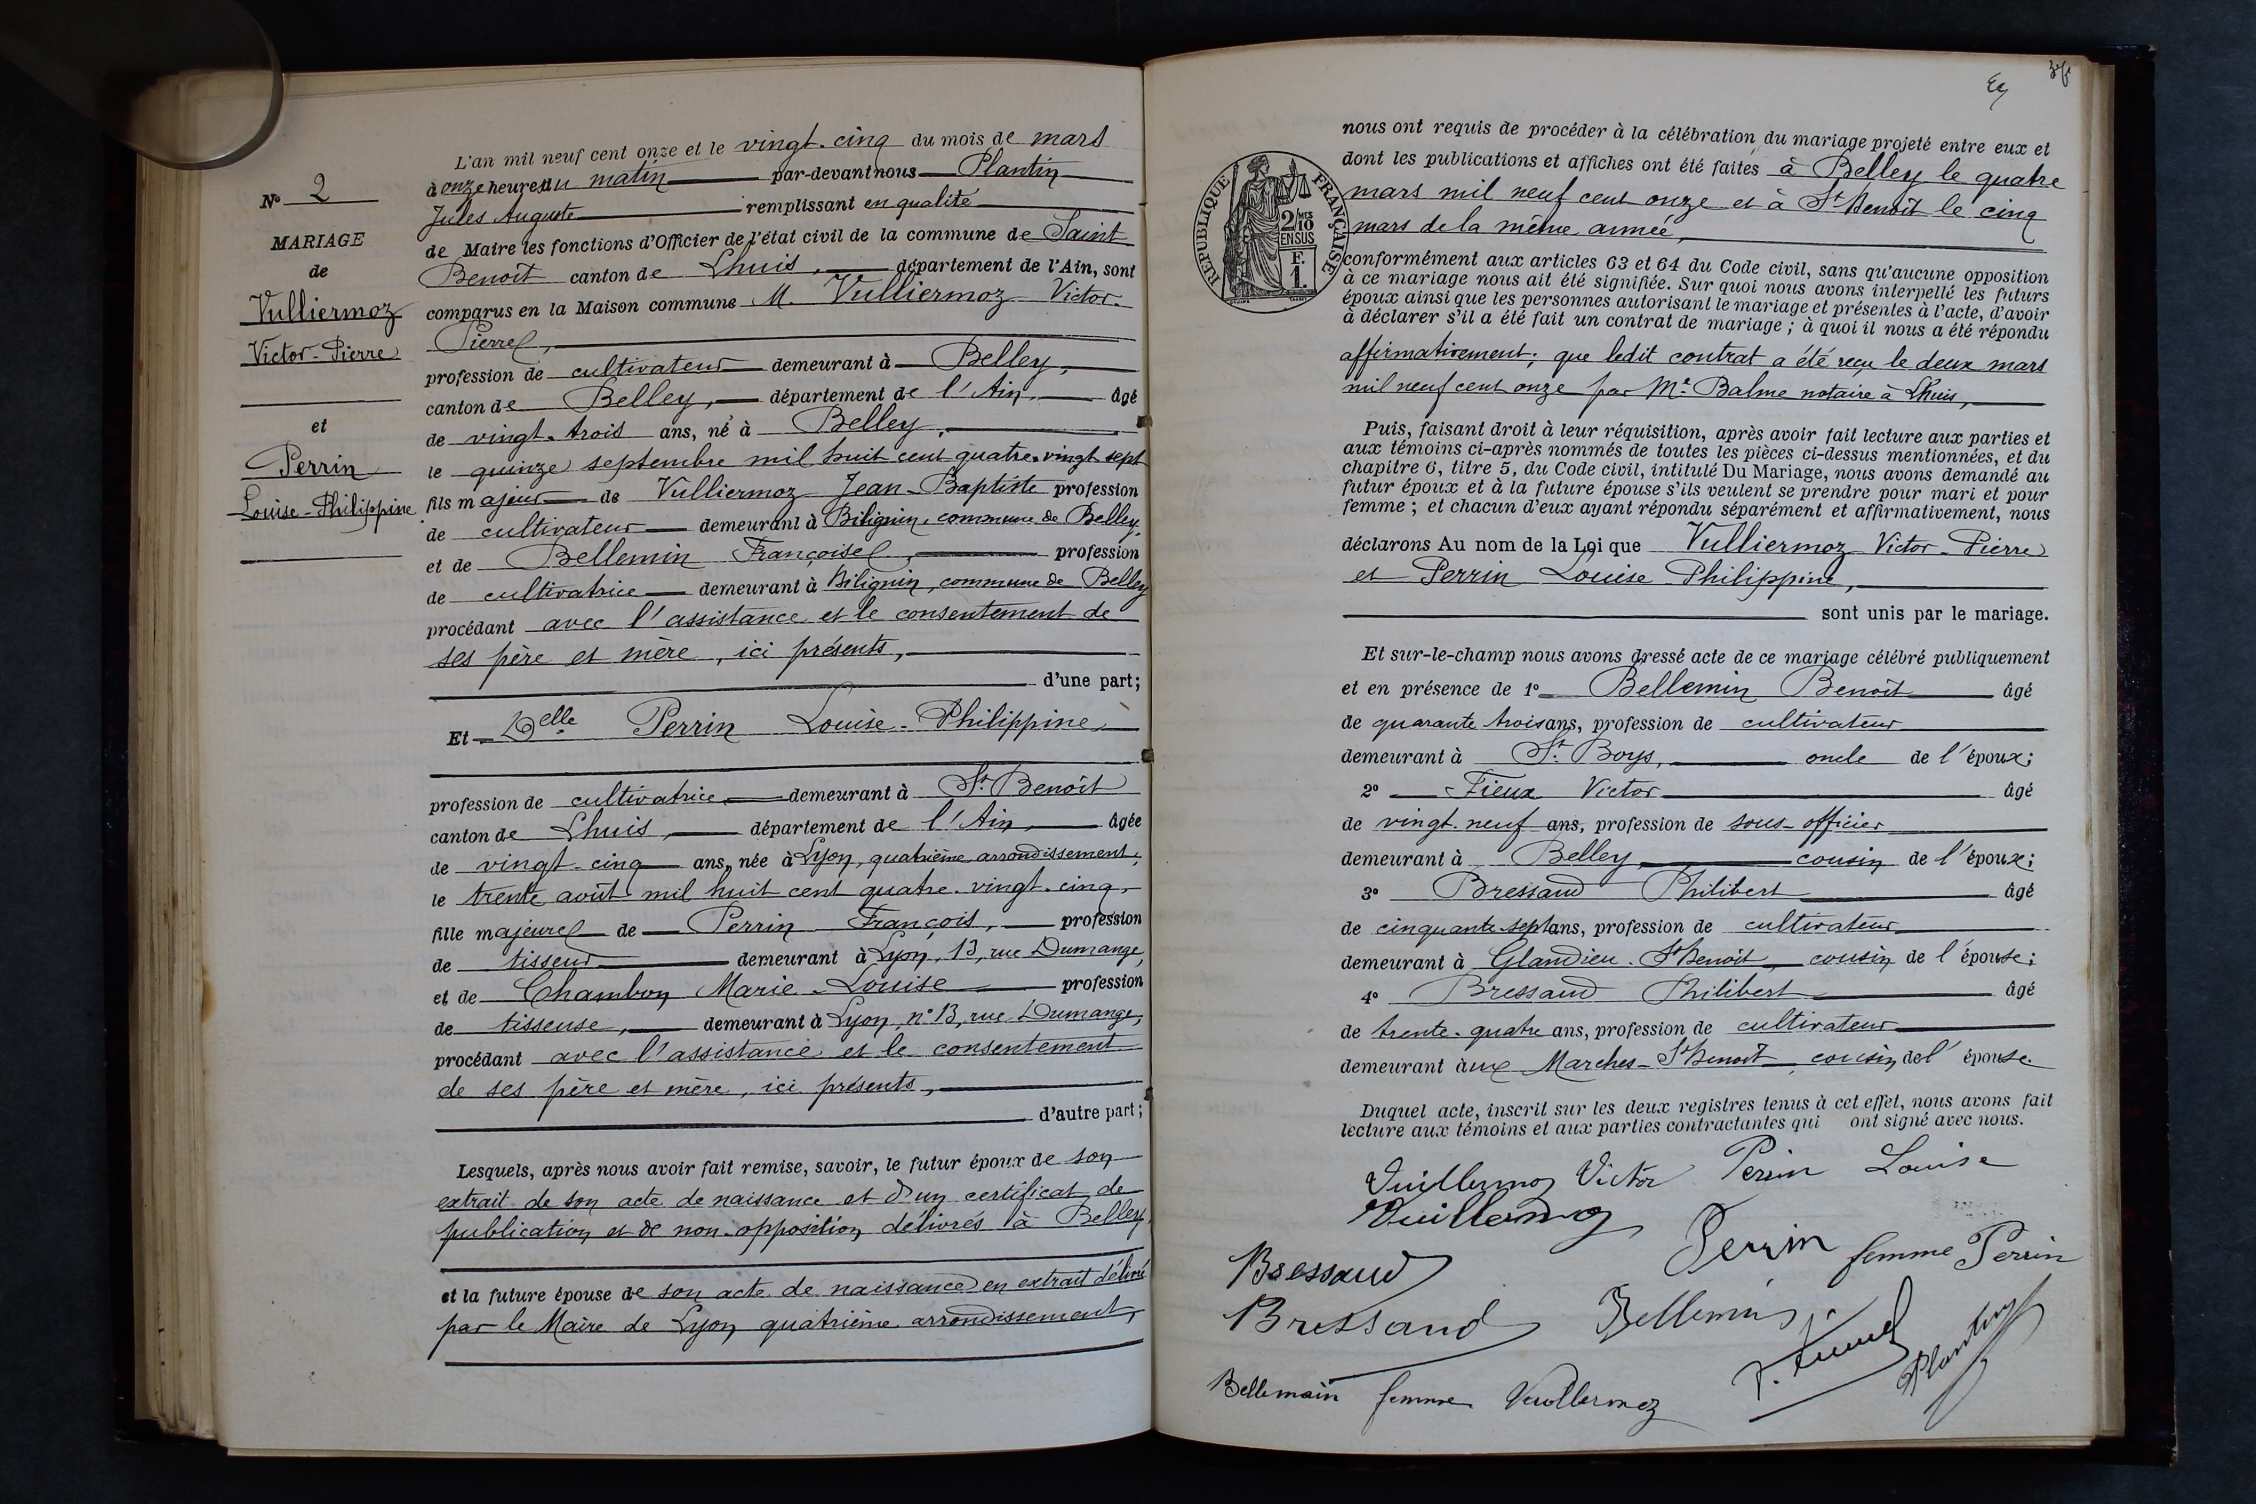 N° 2
MARIAGE
de
Vulliermoz
Victor-Pierre
et
Perrin
Louise-Philippine
L'an mil neuf cent onze et le vingt-cinq du mois de mars
à onze heures du matin par-devant nous Plantin
Jules Auguste remplissant en qualité
de Maire les fonctions d'Officier de l'état civil de la commune de Saint
Benoît canton de Lhuis, département de l'Ain, sont
comparus en la Maison commune M. Vulliermoz Victor-
Pierre,
profession de cultivateur demeurant à Belley,
canton de Belley, département de l'Ain, âgé
de vingt-trois ans, né à Belley,
le quinze septembre mil huit cent quatre-vingt sept
fils majeur de Vulliermoz Jean-Baptiste profession
de cultivateur demeurant à Bilignin, commune de Belley,
et de Bellemin Françoise, profession
de cultivatrice demeurant à Bilignin, commune de Belley
procédant avec l'assistance et le consentement de
ses père et mère, ici présents,
d'une part;
Et Delle Perrin Louise-Philippine,
profession de cultivatrice, demeurant à St Benoît
canton de Lhuis, département de l'Ain, âgée
de vingt-cinq ans, née à Lyon, quatrième arrondissement,
le trente août mil huit cent quatre-vingt-cinq,
fille majeure de Perrin François, profession
de tisseur demeurant à Lyon, 13, rue Dumange,
et de Chambon Marie-Louise profession
de tisseuse, demeurant à Lyon, n° 13, rue Dumange,
procédant avec l'assistance et le consentement
de ses père et mère, ici présents,
d'autre part;
Lesquels, après nous avoir fait remise, savoir, le futur époux de son
extrait de son acte de naissance et d'un certificat de
publication et de non-opposition délivrés à Belley,
et la future épouse de son acte de naissance en extrait délivré
par le Maire de Lyon quatrième arrondissement,
nous ont requis de procéder à la célébration du mariage projeté entre eux et
dont les publications et affiches ont été faites à Belley le quatre
mars mil neuf cent onze et à St Benoît le cinq
mars de la même année,
RÉPUBLIQUE FRANÇAISE
2/10 MES
EN SUS
F.
1.
conformément aux articles 63 et 64 du Code civil, sans qu'aucune opposition
à ce mariage nous ait été signifiée. Sur quoi nous avons interpellé les futurs
époux ainsi que les personnes autorisant le mariage et présentes à l'acte, d'avoir
à déclarer s'il a été fait un contrat de mariage; à quoi il nous a été répondu
affirmativement; que ledit contrat a été reçu le deux mars
mil neuf cent onze par Me Balme notaire à Lhuis,
Puis, faisant droit à leur réquisition, après avoir fait lecture aux parties et
aux témoins ci-après nommés de toutes les pièces ci-dessus mentionnées, et du
chapitre 6, titre 5, du Code civil, intitulé Du Mariage, nous avons demandé au
futur époux et à la future épouse s'ils veulent se prendre pour mari et pour
femme; et chacun d'eux ayant répondu séparément et affirmativement, nous
déclarons Au nom de la Loi que Vulliermoz Victor-Pierre
et Perrin Louise Philippine,
sont unis par le mariage.
Et sur-le-champ nous avons dressé acte de ce mariage célébré publiquement
et en présence de 1° Bellemin Benoît âgé
de quarante trois ans, profession de cultivateur
demeurant à St Boys, oncle de l'époux;
2° Fieux Victor âgé
de vingt-neuf ans, profession de sous-officier
demeurant à Belley, cousin de l'époux;
3° Bressaud Philibert âgé
de cinquante-sept ans, profession de cultivateur
demeurant à Glandieu-St Benoît, cousin de l'épouse;
4° Bressaud Philibert âgé
de trente-quatre ans, profession de cultivateur
demeurant aux Marches-St Benoît, cousin de l'épouse.
Duquel acte, inscrit sur les deux registres tenus à cet effet, nous avons fait
lecture aux témoins et aux parties contractantes qui ont signé avec nous.
Vuillermoz Victor Perrin Louise
Vuillermoz
Bressaud Perrin femme Perrin
Bressaud Bellemin
Plantin
Bellemain femme Vuillermoz